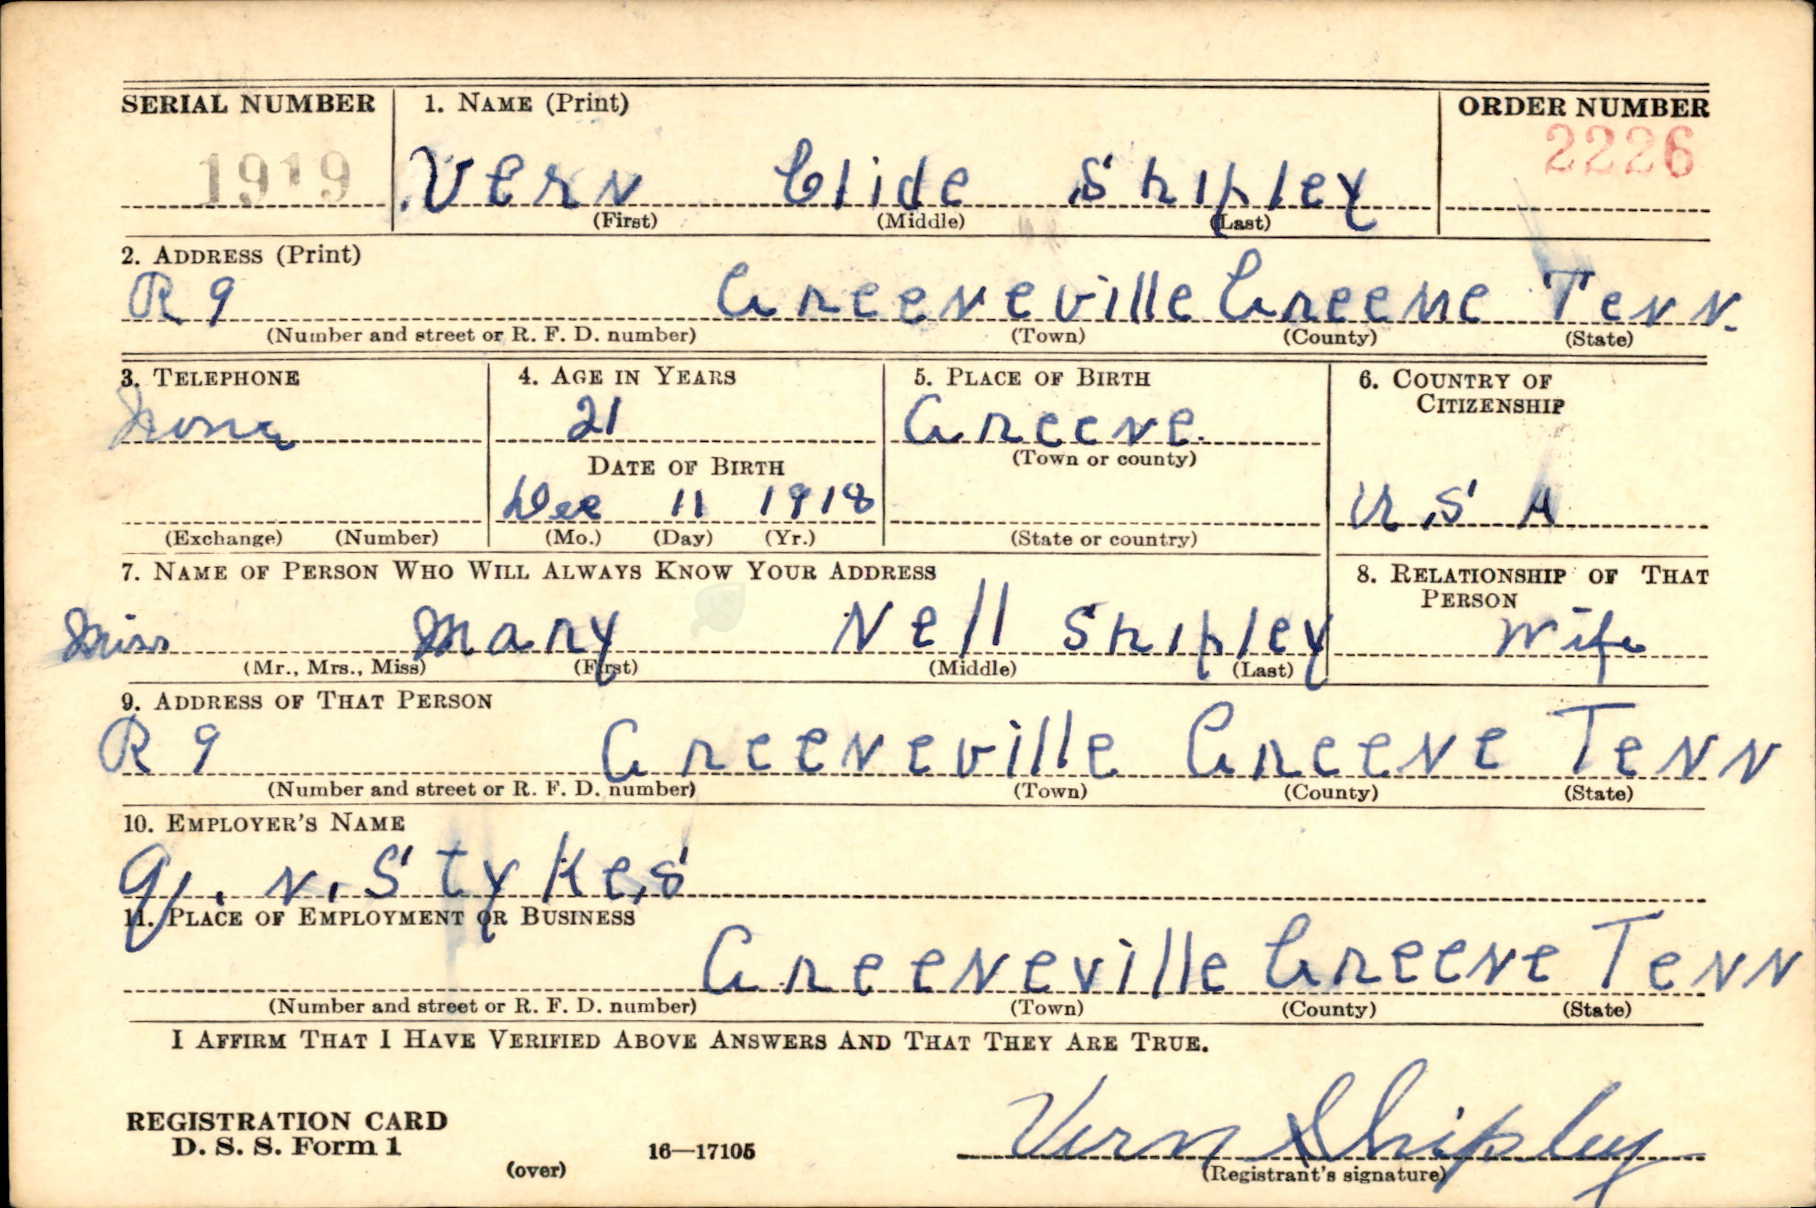 SERIAL NUMBER 1. NAME (Print) ORDER NUMBER
1919 Vern Clide Shipley 2226
(First) (Middle) (Last)
2. ADDRESS (Print)
R 9 Greeneville Greene Tenn.
(Number and street or R. F. D. number) (Town) (County) (State)
3. TELEPHONE 4. AGE IN YEARS 5. PLACE OF BIRTH 6. COUNTRY OF CITIZENSHIP
None 21 Greene
DATE OF BIRTH (Town or county)
Dec 11 1918 U S A
(Exchange) (Number) (Mo.) (Day) (Yr.) (State or country)
7. NAME OF PERSON WHO WILL ALWAYS KNOW YOUR ADDRESS 8. RELATIONSHIP OF THAT PERSON
Miss Mary Nell Shipley Wife
(Mr., Mrs., Miss) (First) (Middle) (Last)
9. ADDRESS OF THAT PERSON
R 9 Greeneville Greene Tenn
(Number and street or R. F. D. number) (Town) (County) (State)
10. EMPLOYER'S NAME
N. Stykes
11. PLACE OF EMPLOYMENT OR BUSINESS
Greeneville Greene Tenn
(Number and street or R. F. D. number) (Town) (County) (State)
I AFFIRM THAT I HAVE VERIFIED ABOVE ANSWERS AND THAT THEY ARE TRUE.
REGISTRATION CARD
D. S. S. Form 1 (over) 16—17105 Vern Shipley
(Registrant's signature)